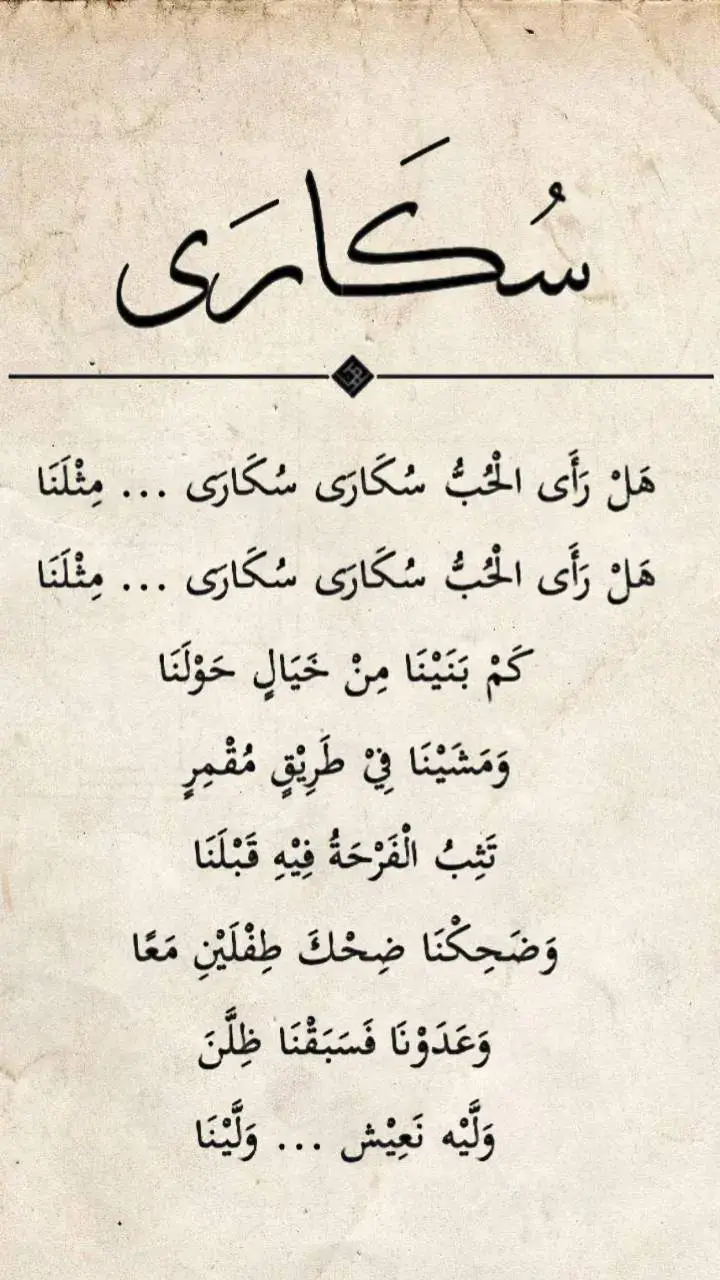 سُكَارَى
هَلْ رَأَى الْحُبُّ سُكَارَى سُكَارَى ... مِثْلَنَا
هَلْ رَأَى الْحُبُّ سُكَارَى سُكَارَى ... مِثْلَنَا
كَمْ بَنَيْنَا مِنْ خَيَالٍ حَوْلَنَا
وَمَشَيْنَا فِيْ طَرِيْقٍ مُقْمِرٍ
تَثِبُ الْفَرْحَةُ فِيْهِ قَبْلَنَا
وَضَحِكْنَا ضِحْكَ طِفْلَيْنِ مَعًا
وَعَدَوْنَا فَسَبَقْنَا ظِلَّنَ
وَلَّيْه نَعِيْش ... وَلَّيْنَا